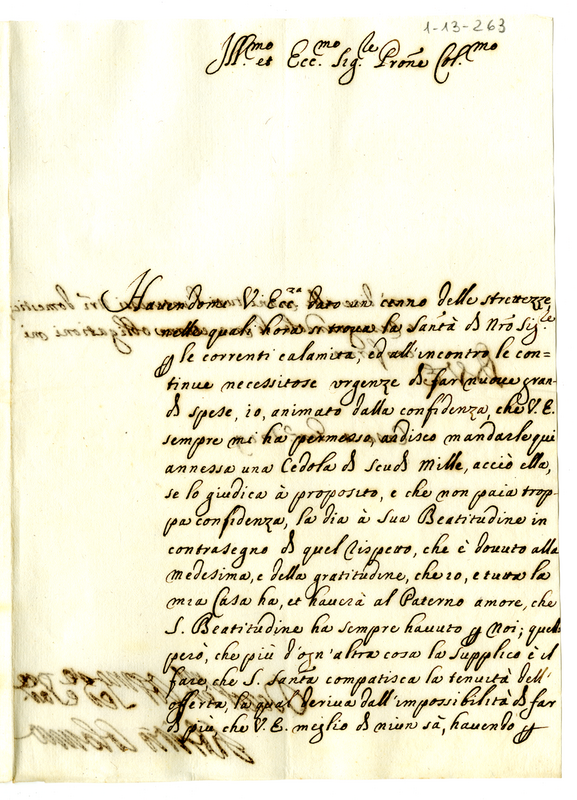 1-13-263
Ill.mo et Ecc.mo Sig.re Prone Col.mo
Havendomi V. Ecc.za dato un cenno delle strettezze,
nelle quali hora si trova la Santà di Nro Sig.re
per le correnti calamità, ed all'incontro le con-
tinue necessitose urgenze di far nuove gran-
di spese, io, animato dalla confidenza, che V. E.
sempre mi ha permesso, ardisco mandarle qui
annessa una Cedola di scudi Mille, acciò ella,
se lo giudica à proposito, e che non paia trop-
pa confidenza, la dia à Sua Beatitudine in
contrasegno di quel rispetto, che è dovuto alla
medesima, e della gratitudine, che io, e tutta la
mia Casa ha, et haverà al Paterno amore, che
S. Beatitudine ha sempre havuto per Noi; quello
però, che più d'ogn'altra cosa la supplico è il
fare che S. Santà compatisca la tenuità dell'
offerta, la qual deriva dall'impossibilità di far
di più, che V. E. meglio di niun sà, havendo per